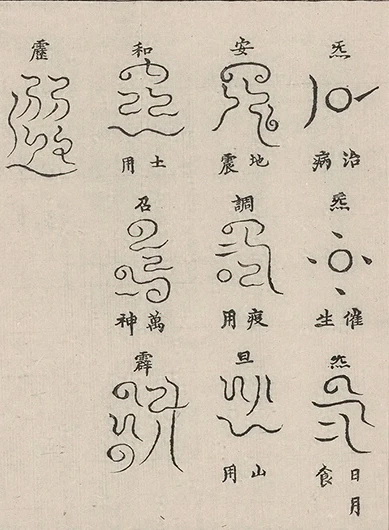 炁
治病
炁
催生
炁
日月食
安
地震
調
疫用
旦
山用
和
土用
召
萬神
霹